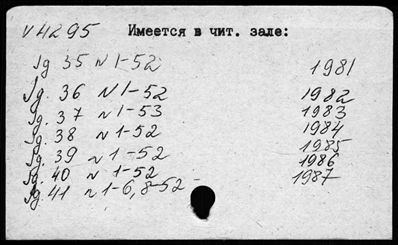 V4295 Имеется в чит. зале:
Jg 35 N 1-52 1981
Jg. 36 N 1-52 1982
Jg. 37 N 1-53 1983
Jg. 38 N 1-52 1984
Jg. 39 N 1-52 1985
Jg. 40 N 1-52 1986
Jg. 41 N 1-6, 8-52 1987